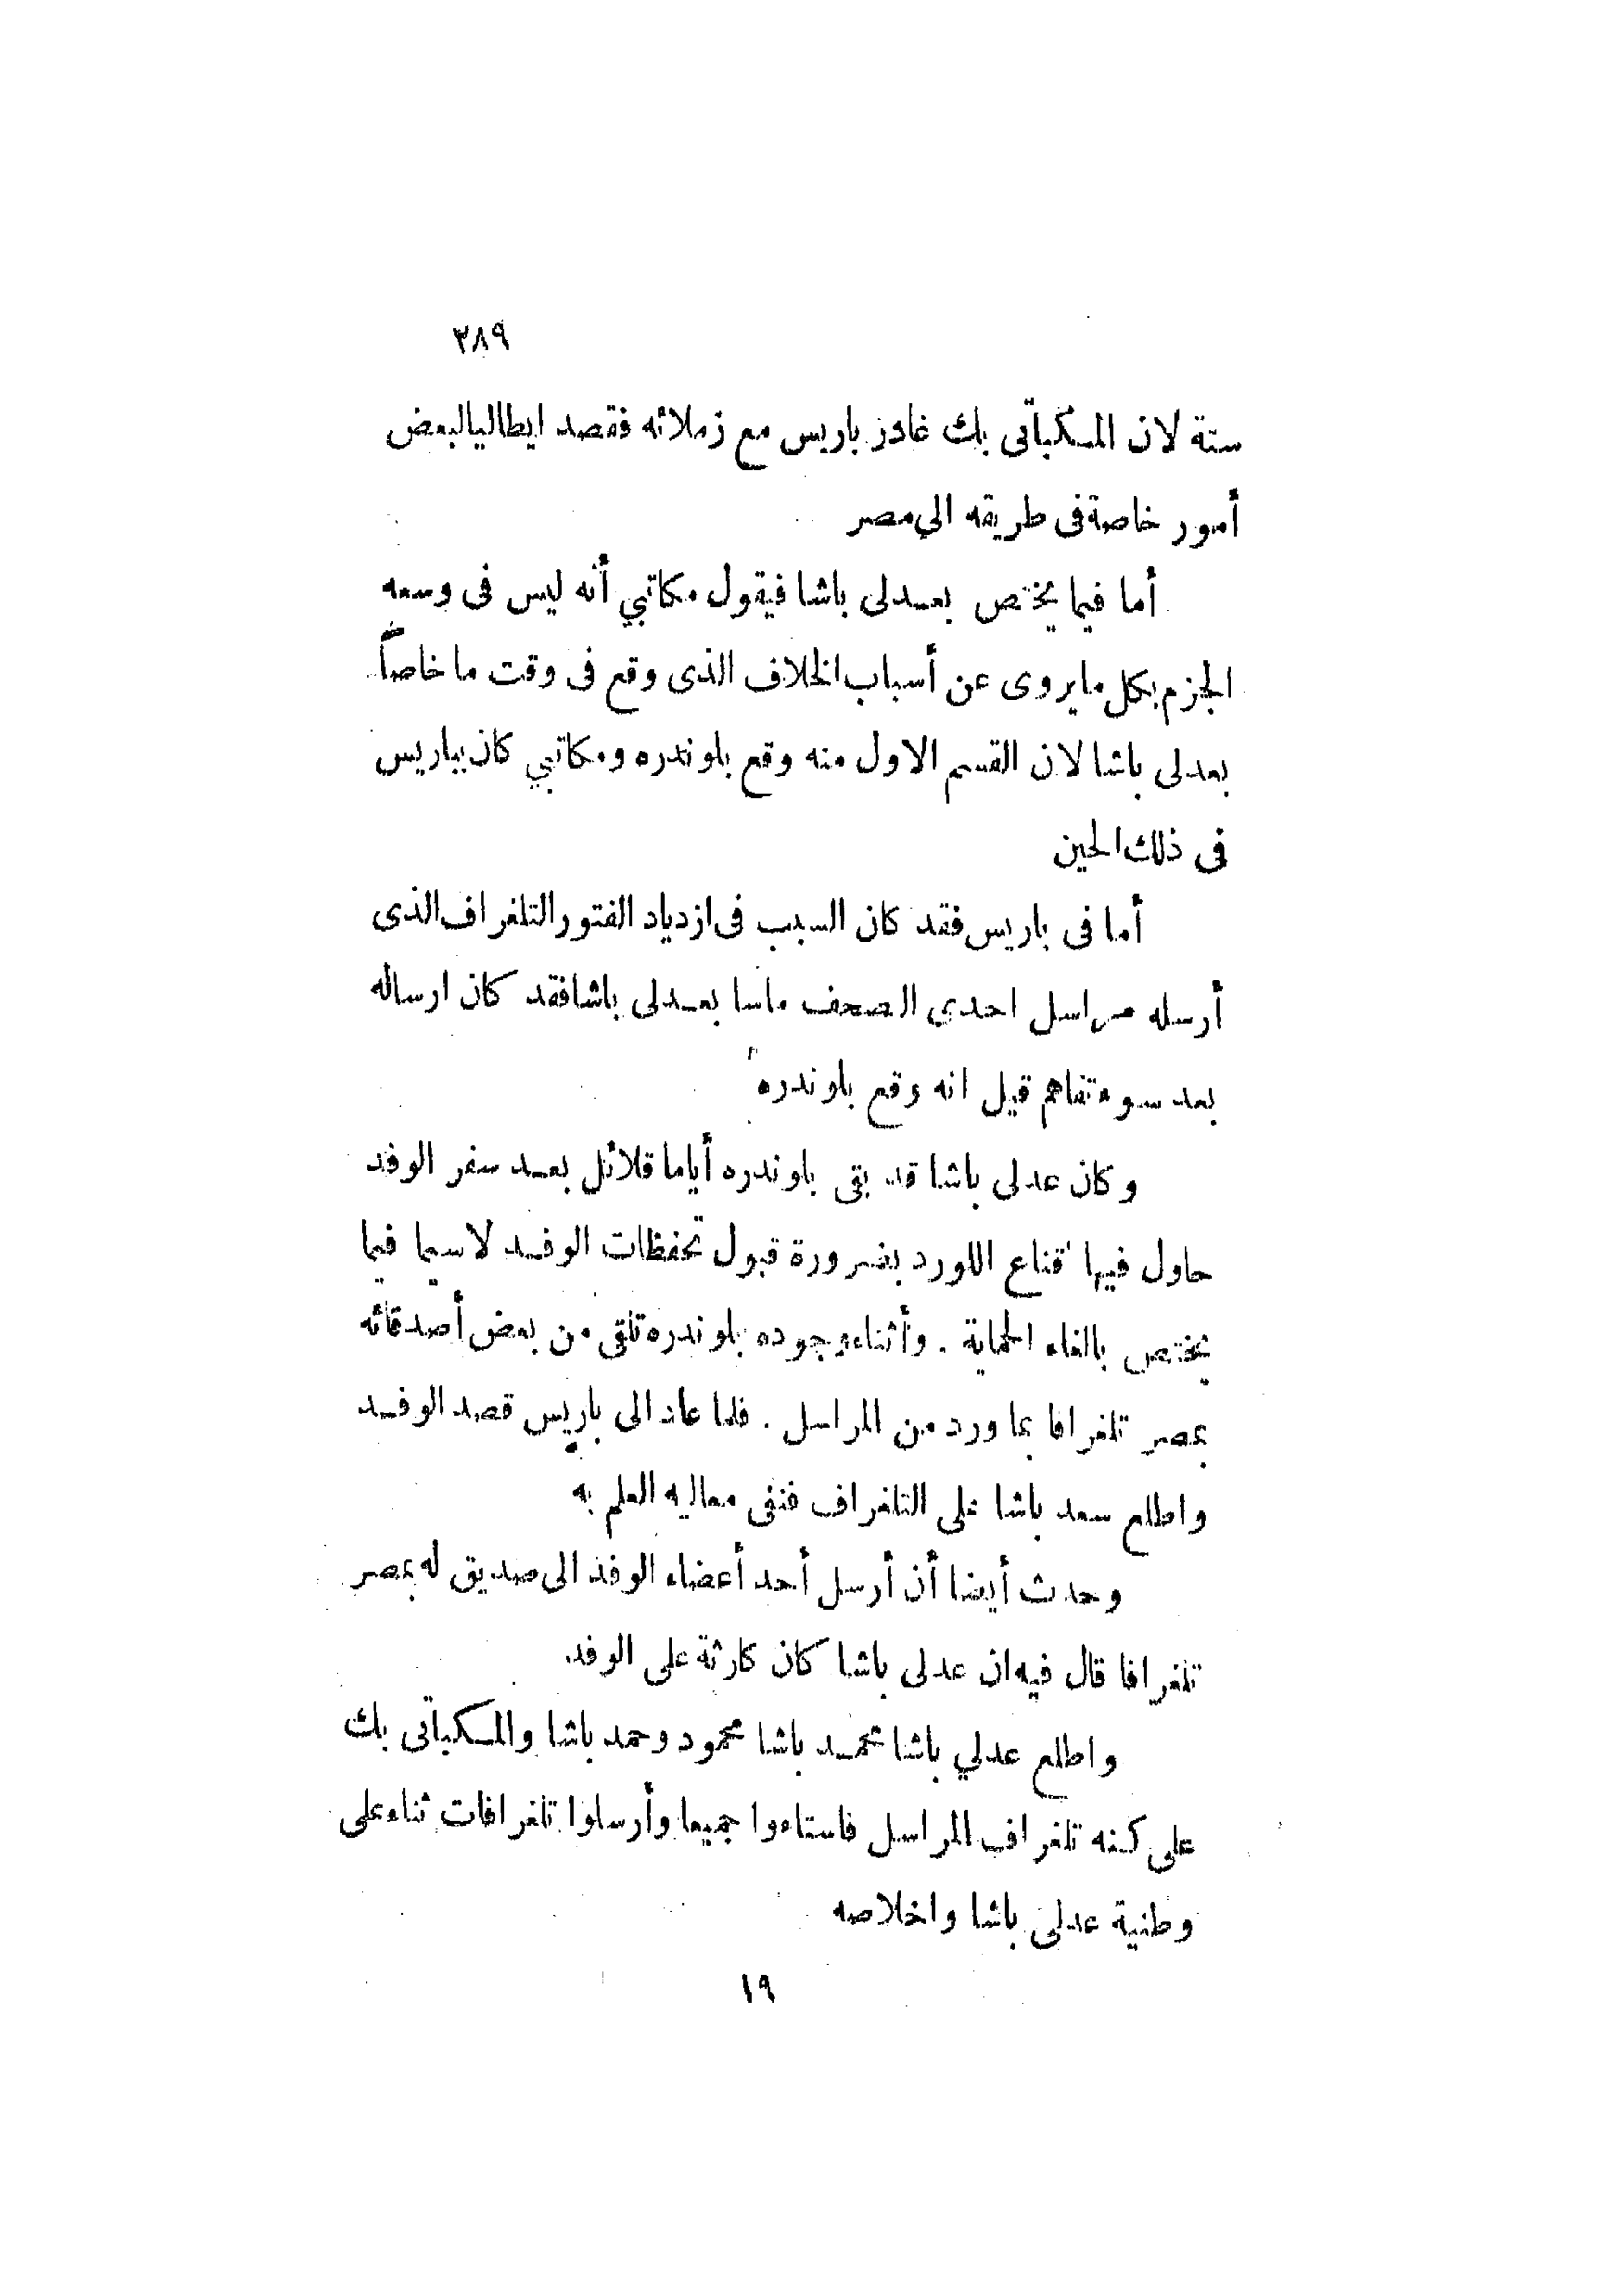 ٣٨٩
ستة لان المكباتى بك غادر باريس مع زملائه فقصد ايطاليا لبعض
أمور خاصة فى طريقه الى مصر
أما فيما يختص بعدلى باشا فيقول مكاتبي أنه ليس فى وسعه
الجزم بكل ما يروى عن أسباب الخلاف الذى وقع فى وقت ما خاصاً
بعدلى باشا لان القسم الاول منه وقع بلوندره ومكاتبي كان بباريس
فى ذلك الحين
أما فى باريس فقد كان السبب فى ازدياد الفتور التلغراف الذى
أرسله مراسل احدى الصحف ماسا بعدلى باشا فقد كان ارساله
بعد سوء تفاهم قيل انه وقع بلوندره
وكان عدلى باشا قد بقى بلوندره أياما قلائل بعد سفر الوفد
حاول فيها اقناع اللورد بضرورة قبول تحفظات الوفد لاسيما فيما
يختص بالغاء الحماية . وأثناء وجوده بلوندره تلقى من بعض أصدقائه
بمصر تلغرافا بما ورد من المراسل . فلما عاد الى باريس قصد الوفد
واطلع سعد باشا على التلغراف فنفى معاليه العلم به
وحدث أيضا أن أرسل أحد أعضاء الوفد الى صديق له بمصر
تلغرافا قال فيه ان عدلى باشا كان كارثة على الوفد.
واطلع عدلي باشا محمد باشا محمود وحمد باشا والمكباتى بك
على كنه تلغراف المراسل فاستاءوا جميعا وأرسلوا تلغرافات ثناء على
وطنية عدلى باشا واخلاصه
١٩